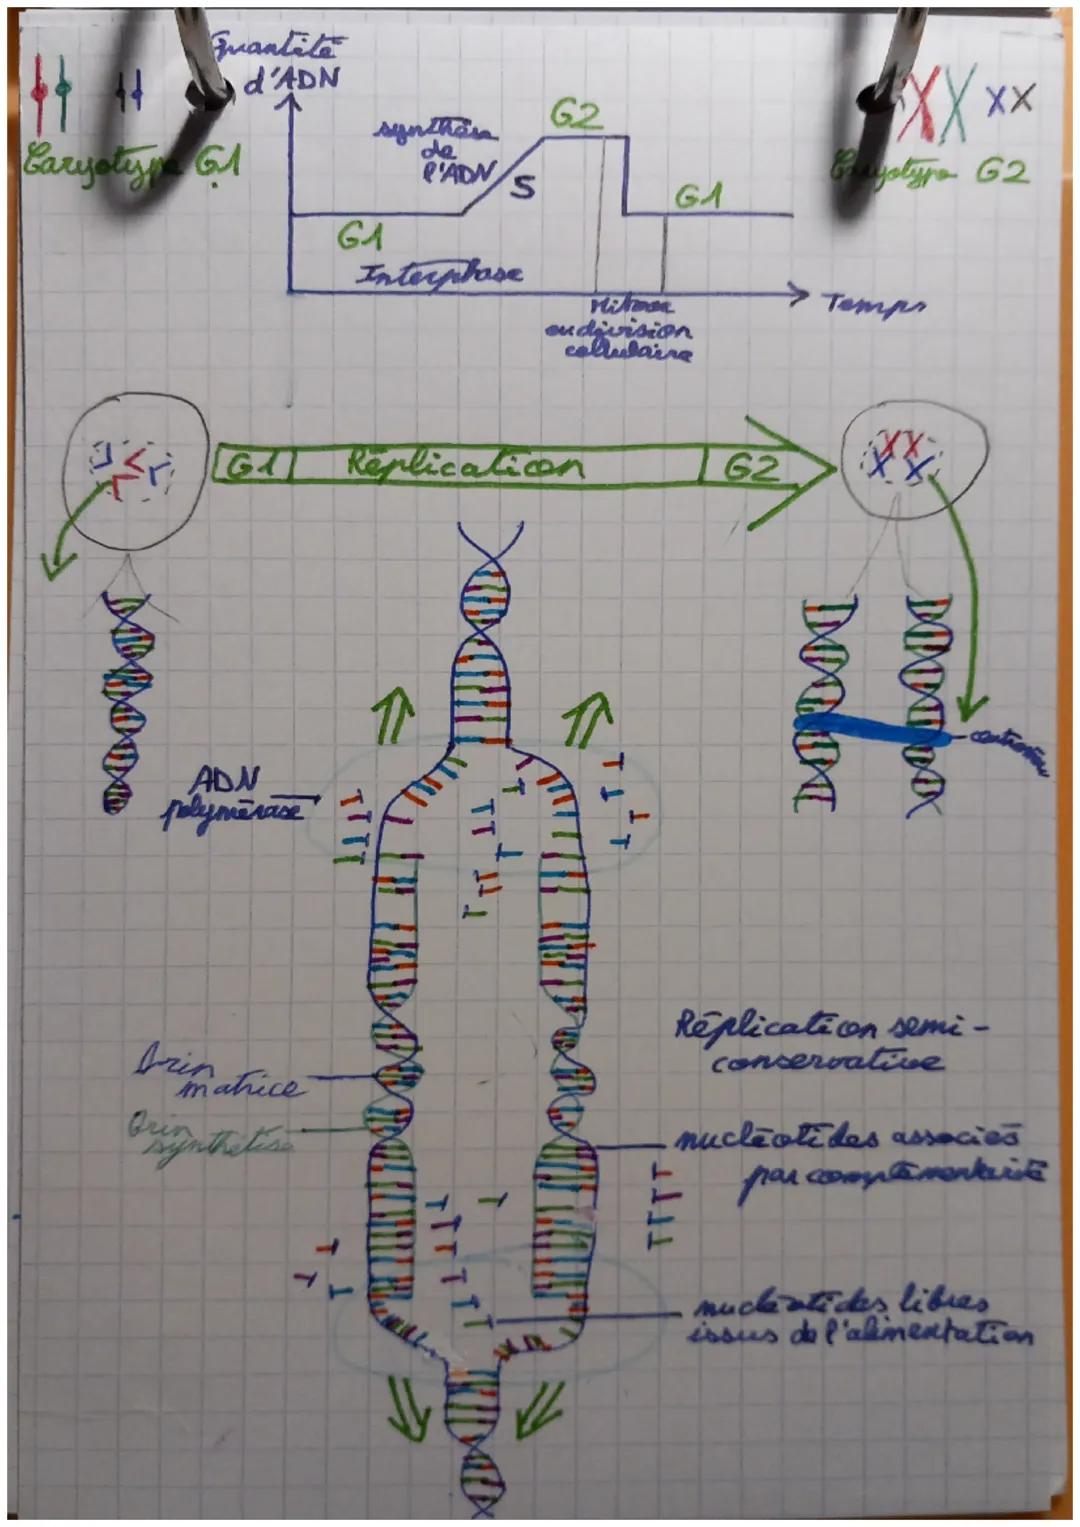 Quantité
d'ADN
Caryotype G1
synthèse
de
l'ADN
S
G2
G1
G1
Caryotype G2
Interphase
Temps
Mitose
ou division
cellulaire
G1
Réplication
G2
centromère
ADN
polymérase
Réplication semi-
conservative
Brin
matrice
Brin
synthétisé
nucléotides associés
par complémentarité
nucléotides libres
issus de l'alimentation